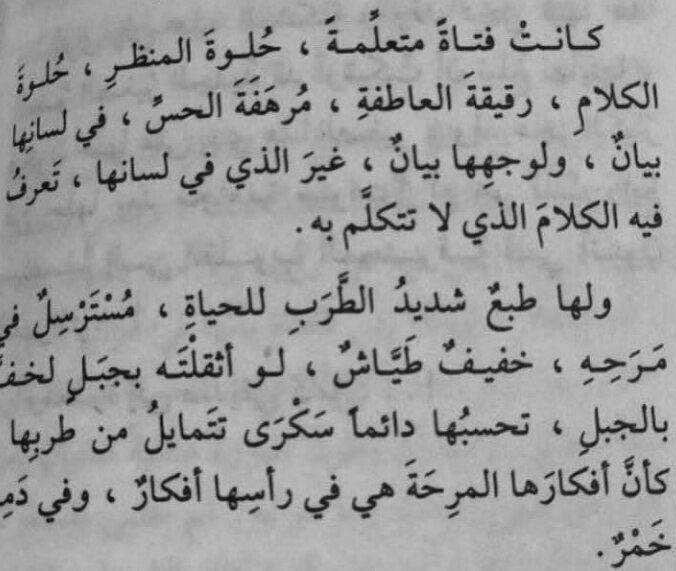 كـانـتْ فتـاةً متعلِّمـةً ، حُلـوةَ المنظـرِ ، حُلوةَ
الكلامِ ، رقيقةَ العاطفةِ ، مُرهَفَةَ الحسِّ ، في لسانِها
بيانٌ ، ولوجهِها بيانٌ ، غيرَ الذي في لسانها ، تَعرفُ
فيه الكلامَ الذي لا تتكلَّم به .
ولها طبعٌ شديدُ الطَّرَبِ للحياةِ ، مُسْتَرْسِلٌ في
مَـرَحِـهِ ، خفيـفٌ طَيَّاشٌ ، لـو أثقلْتَـه بجبَـلٍ لخفَّ
بالجبلِ ، تحسبُها دائماً سَكْرَى تتَمايلُ من طربِها
كأنَّ أفكارَها المرِحَةَ هي في رأسِها أفكارٌ ، وفي
خَمْرٌ .